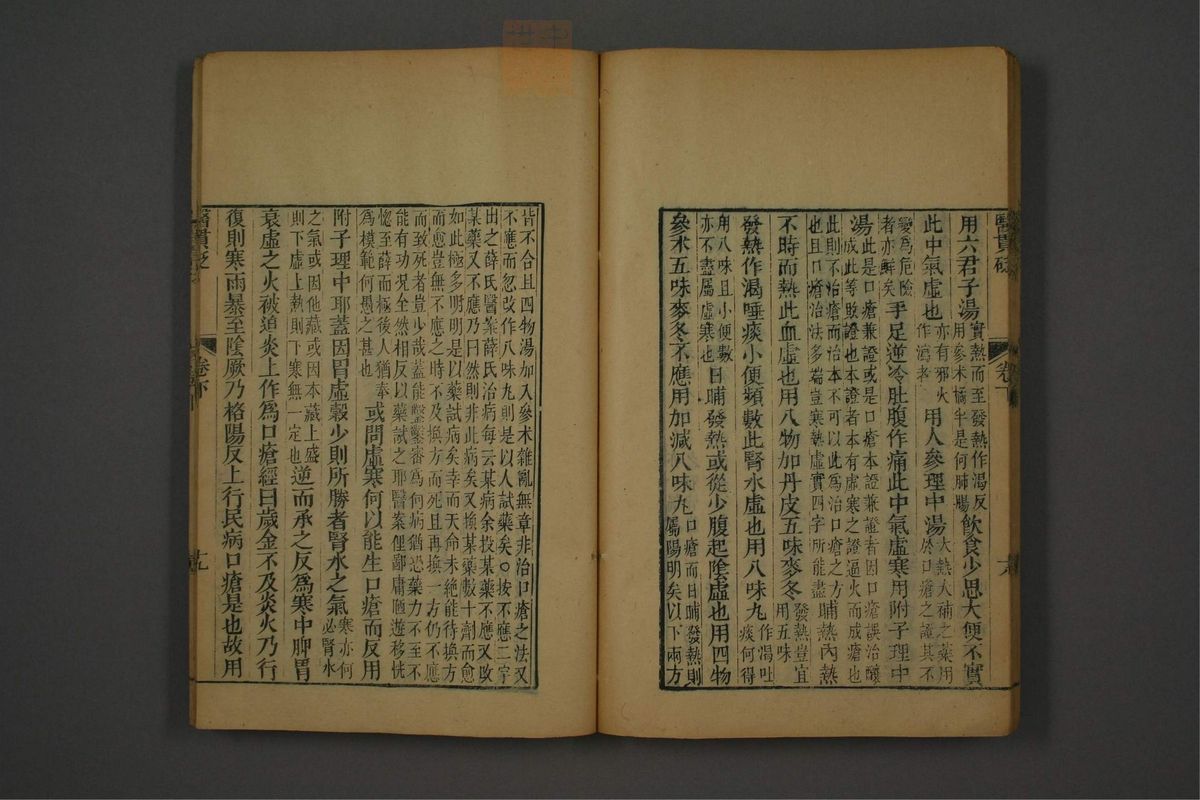 醫貫砭
卷下
用六君子湯實熱而至發熱作渴反用參术橘半是何肺腸飲食少思大便不實
此中氣虛也亦有邪火作瀉者用人參理中湯大熱大補之藥用於口瘡之證其不
變為危險者亦鮮矣手足逆冷肚腹作痛此中氣虛寒用附子理中
湯此是口瘡兼證或是口瘡本證兼證者因口瘡誤治釀成此等敗證也本證者本有虛寒之證逼火而成瘡也
此則不治瘡而治本不可以此為治口瘡之方也且口瘡治法多端豈寒熱虛實四字所能盡晡熱內熱
不時而熱此血虛也用八物加丹皮五味麥冬發熱豈宜用五味
發熱作渴唾痰小便頻數此腎水虛也用八味丸作渴吐痰何得
用八味且小便數亦不盡屬虛寒也日晡發熱或從少腹起陰虛也用四物
參术五味麥冬不應用加減八味丸口瘡而日晡發熱則屬陽明矣以下兩方
皆不合且四物湯加入參术雜亂無章非治口瘡之法又不應而忽改作八味丸則是以人試藥矣○按不應二字
出之薛氏醫案薛氏治病每云某病余投某藥不應又改某藥又不應乃曰然則非此病矣又換某藥數十劑而愈
如此極多明明是以藥試病矣幸而天命未絕能待換方而愈豈無不應之時不及換方而死且再換一方仍不應
而致死者豈少哉蓋能鑿鑿審為何病猶恐藥力不至不能有功况全然相反以藥試之耶醫案俚鄙庸陋遊移恍
惚至薛而極後人猶奉為模範何愚之甚也或問虛寒何以能生口瘡而反用
附子理中耶蓋因胃虛穀少則所勝者腎水之氣寒亦何必腎水
之氣或因他藏或因本藏上盛則下虛上熱則下寒無一定也逆而承之反為寒中脾胃
衰虛之火被迫炎上作為口瘡經曰歲金不及炎火乃行
復則寒雨暴至陰厥乃格陽反上行民病口瘡是也故用
醫貫砭
卷下
十九